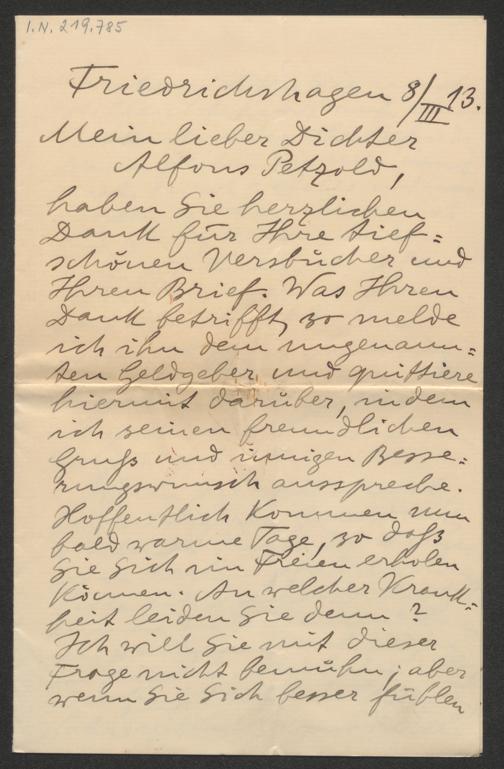 I.N. 219.785
Friedrichshagen 8/III 13.
Mein lieber Dichter
Alfons Petzold,
haben Sie herzlichen
Dank für Ihre tief=
schönen Versbücher und
Ihren Brief. Was Ihren
Dank betrifft, so melde
ich ihn dem ungenann=
ten Geldgeber, und quittiere
hiermit darüber, indem
ich seinen freundlichen
Gruß und innigen Besse=
rungswunsch ausspreche.
Hoffentlich kommen nun
bald warme Tage, so daß
Sie Sich im Freien erholen
können. An welcher Krank=
heit leiden Sie denn?
Ich will Sie mit dieser
Frage nicht bemühn; aber
wenn Sie Sich besser fühlen